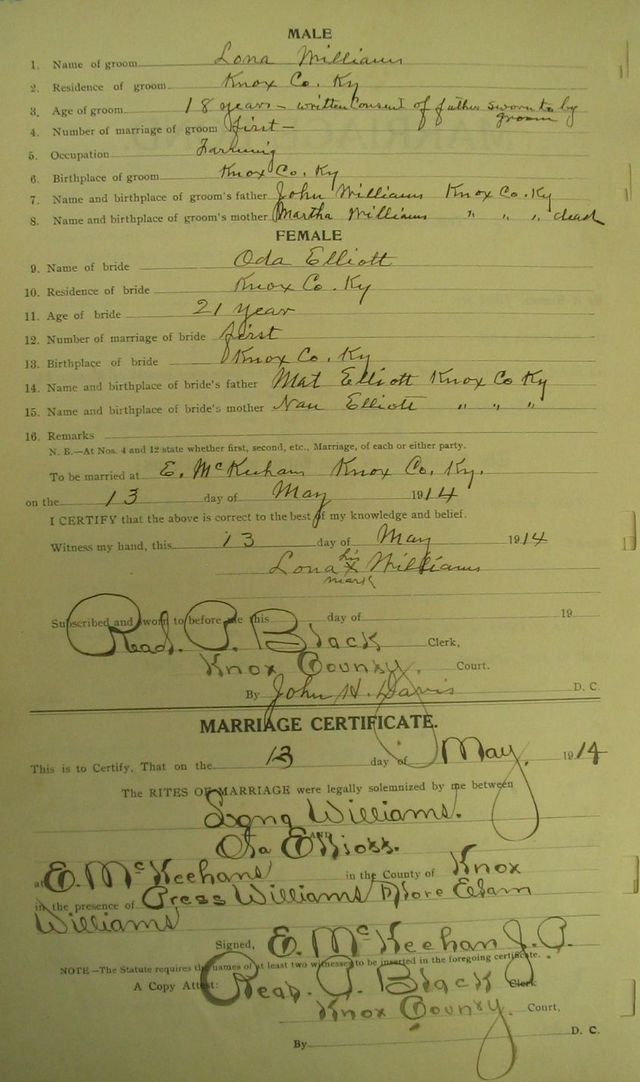 MALE
1. Name of groom Lona Williams
2. Residence of groom Knox Co. Ky
3. Age of groom 18 years – written consent of father sworn to by groom
4. Number of marriage of groom first –
5. Occupation Farming
6. Birthplace of groom Knox Co. Ky
7. Name and birthplace of groom's father John Williams Knox Co. Ky
8. Name and birthplace of groom's mother Martha Williams " " " dead
FEMALE
9. Name of bride Oda Elliott
10. Residence of bride Knox Co. Ky
11. Age of bride 21 year
12. Number of marriage of bride first
13. Birthplace of bride Knox Co. Ky
14. Name and birthplace of bride's father Mat Elliott Knox Co Ky
15. Name and birthplace of bride's mother Nan Elliott " " "
16. Remarks
N. B.—At Nos. 4 and 12 state whether first, second, etc., Marriage, of each or either party.
To be married at E. McKeehan Knox Co. Ky.
on the 13 day of May 1914
I CERTIFY that the above is correct to the best of my knowledge and belief.
Witness my hand, this 13 day of May 1914
Lona his x mark Williams
Subscribed and sworn to before me this day of 19
Read. P. Black Clerk,
Knox County. Court.
By John H. Davis D. C.
MARRIAGE CERTIFICATE.
This is to Certify, That on the 13 day of May, 1914
The RITES OF MARRIAGE were legally solemnized by me between
Williams.
AND
at E. McKeehans in the County of Knox
in the presence of Press Williams
Williams
Signed, E. McKeehan J. P.
NOTE—The Statute requires the names of at least two witnesses to be inserted in the foregoing certificate.
A Copy Attest: Read. P. Black Clerk
Knox County. Court,
By D. C.